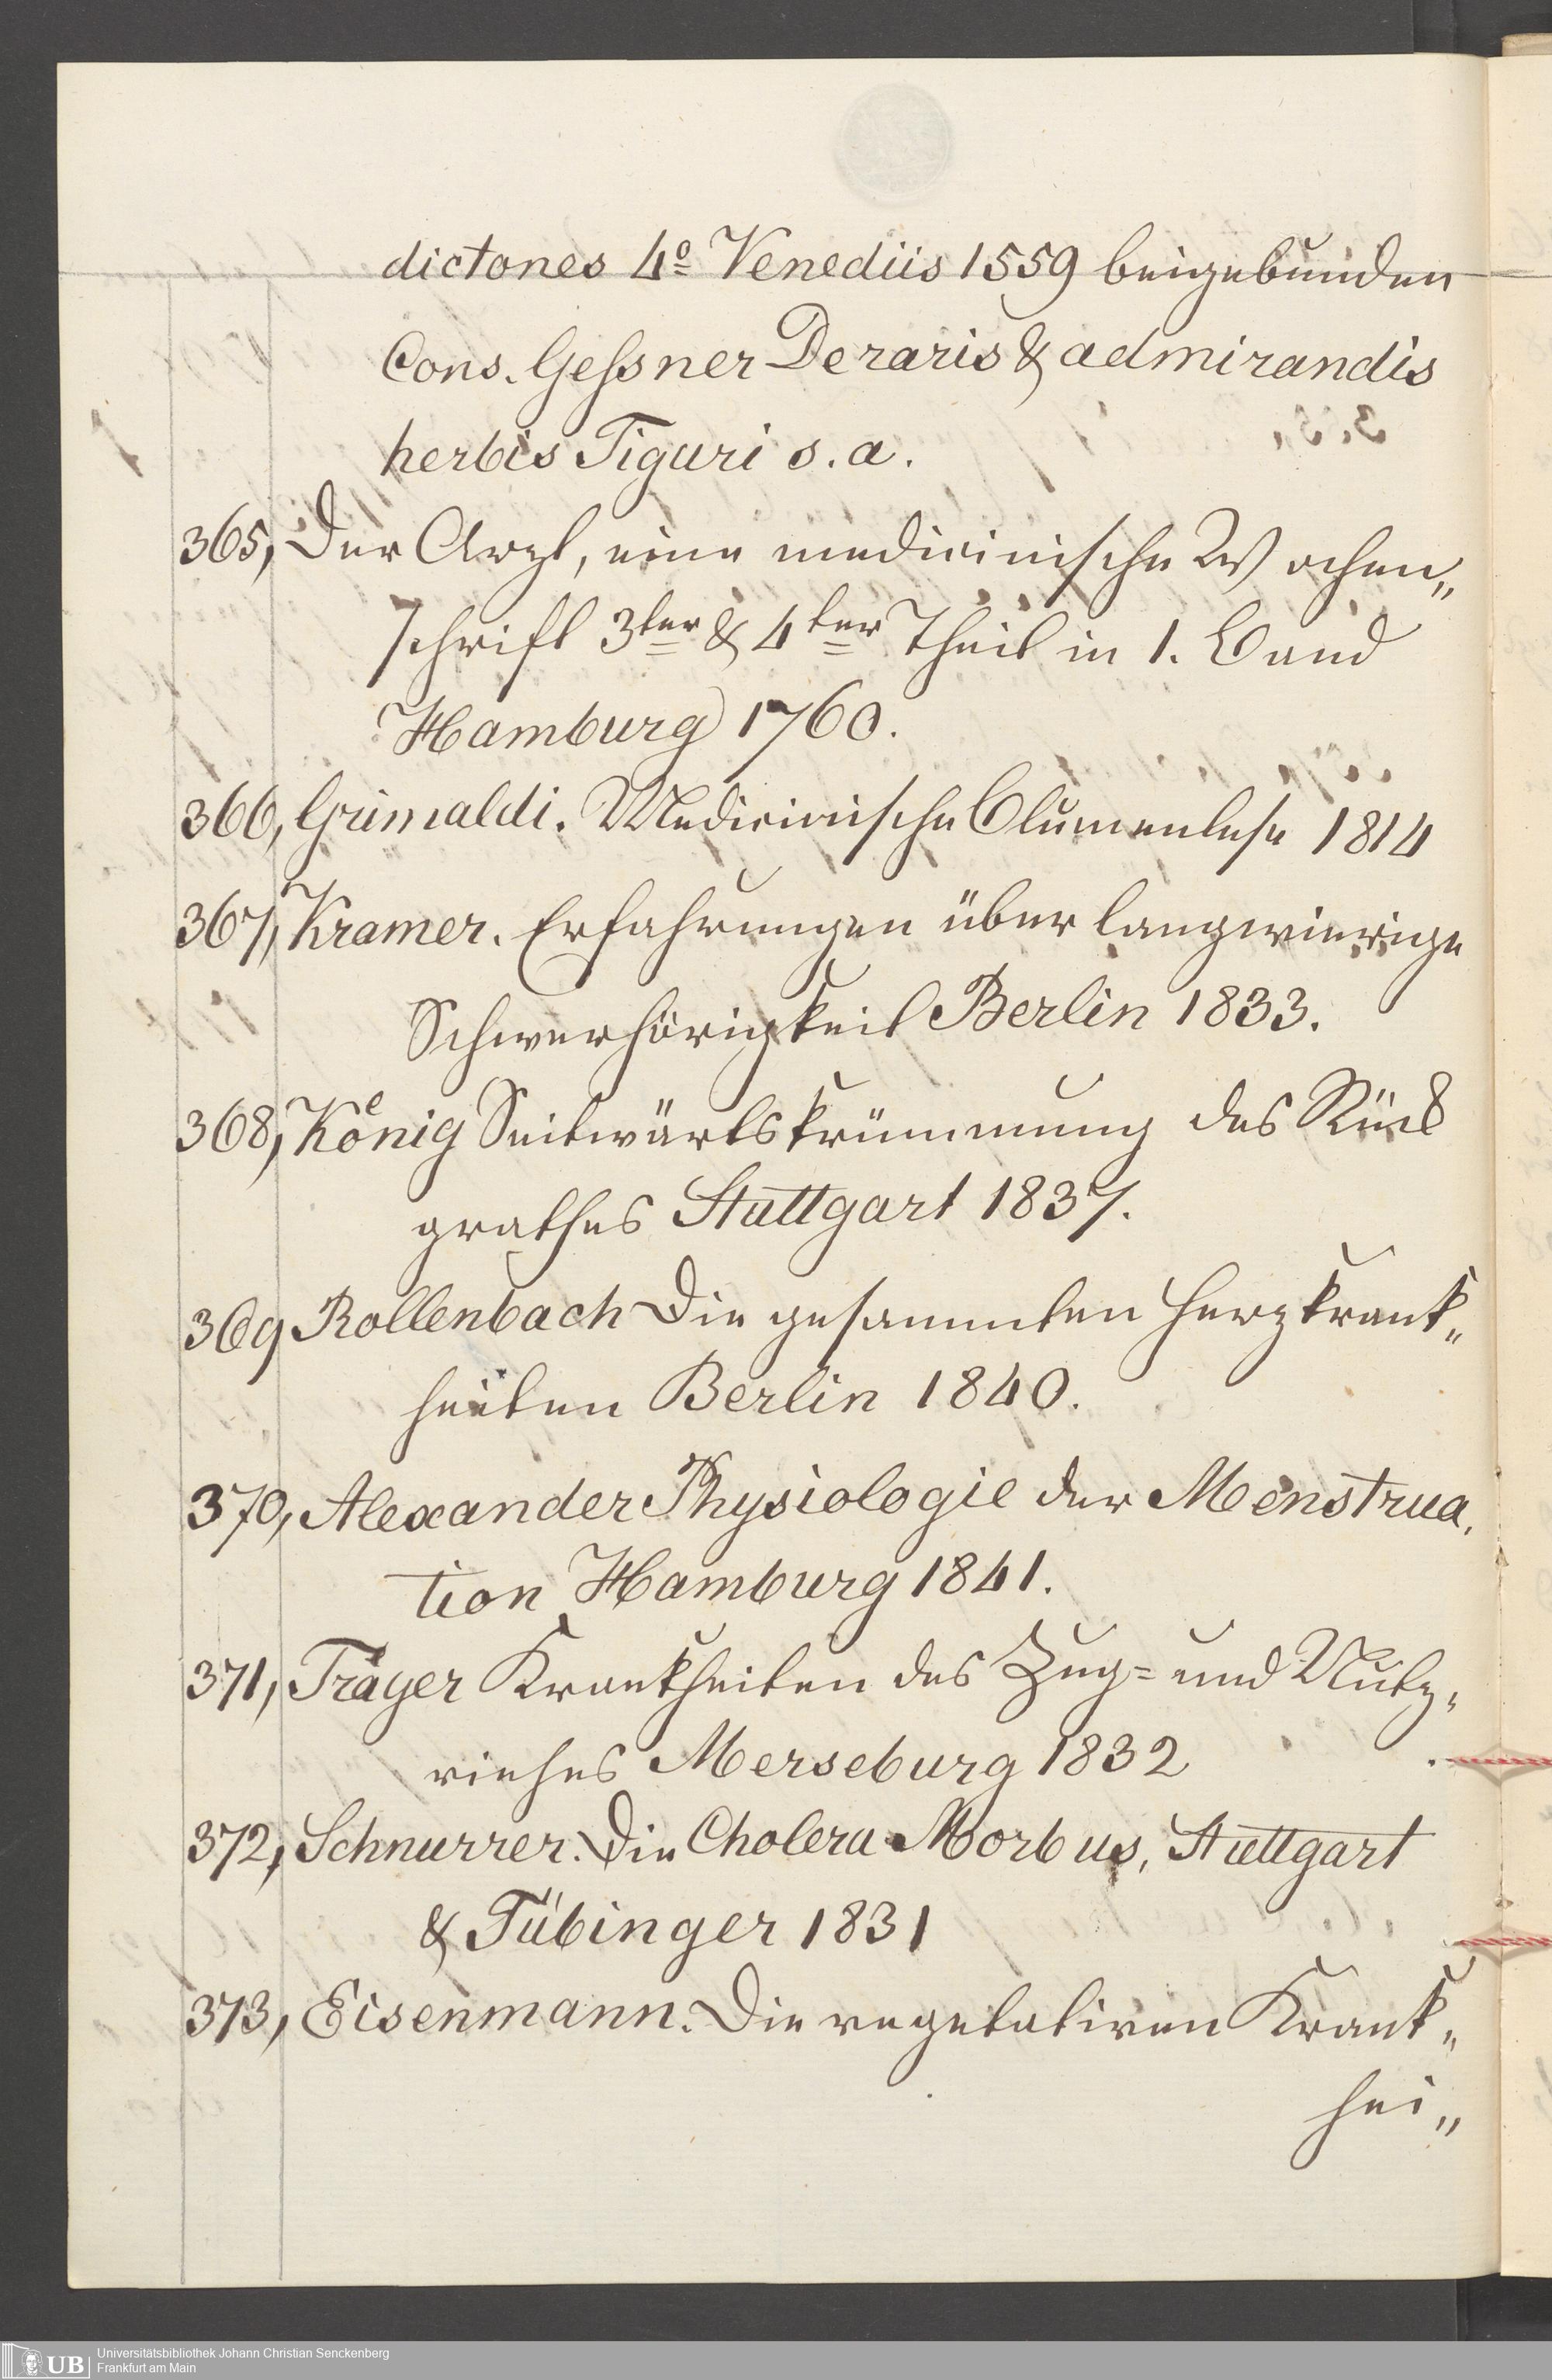 dictones 4º Venediis 1559 beigebunden
Cons. Geßner De raris & admirandis
herbis Tiguri s. a.
365, Der Arzt, eine medicinische Wochen„
schrift 3ter & 4ter Theil in 1. Band
Hamburg 1760.
366, Grimaldi. Medicinische Blumenlese 1814
367, Kramer. Erfahrungen über langwierige
Schwerhörigkeit Berlin 1833.
368, König Seitwärtskrümmung des Rück
grathes Stuttgart 1837.
369 Rollenbach Die gesammten Herzkrank„
heiten Berlin 1840.
370, Alexander Physiologie der Menstrua,
tion Hamburg 1841.
371, Träger Krankheiten des Zug= und Nutz„
viehes Merseburg 1832
372, Schnurrer. Die Cholera Morbus, Stuttgart
& Tübinger 1831
373, Eisenmann. Die vegetativen Krank„
hei„
UB Universitätsbibliothek Johann Christian Senckenberg
Frankfurt am Main